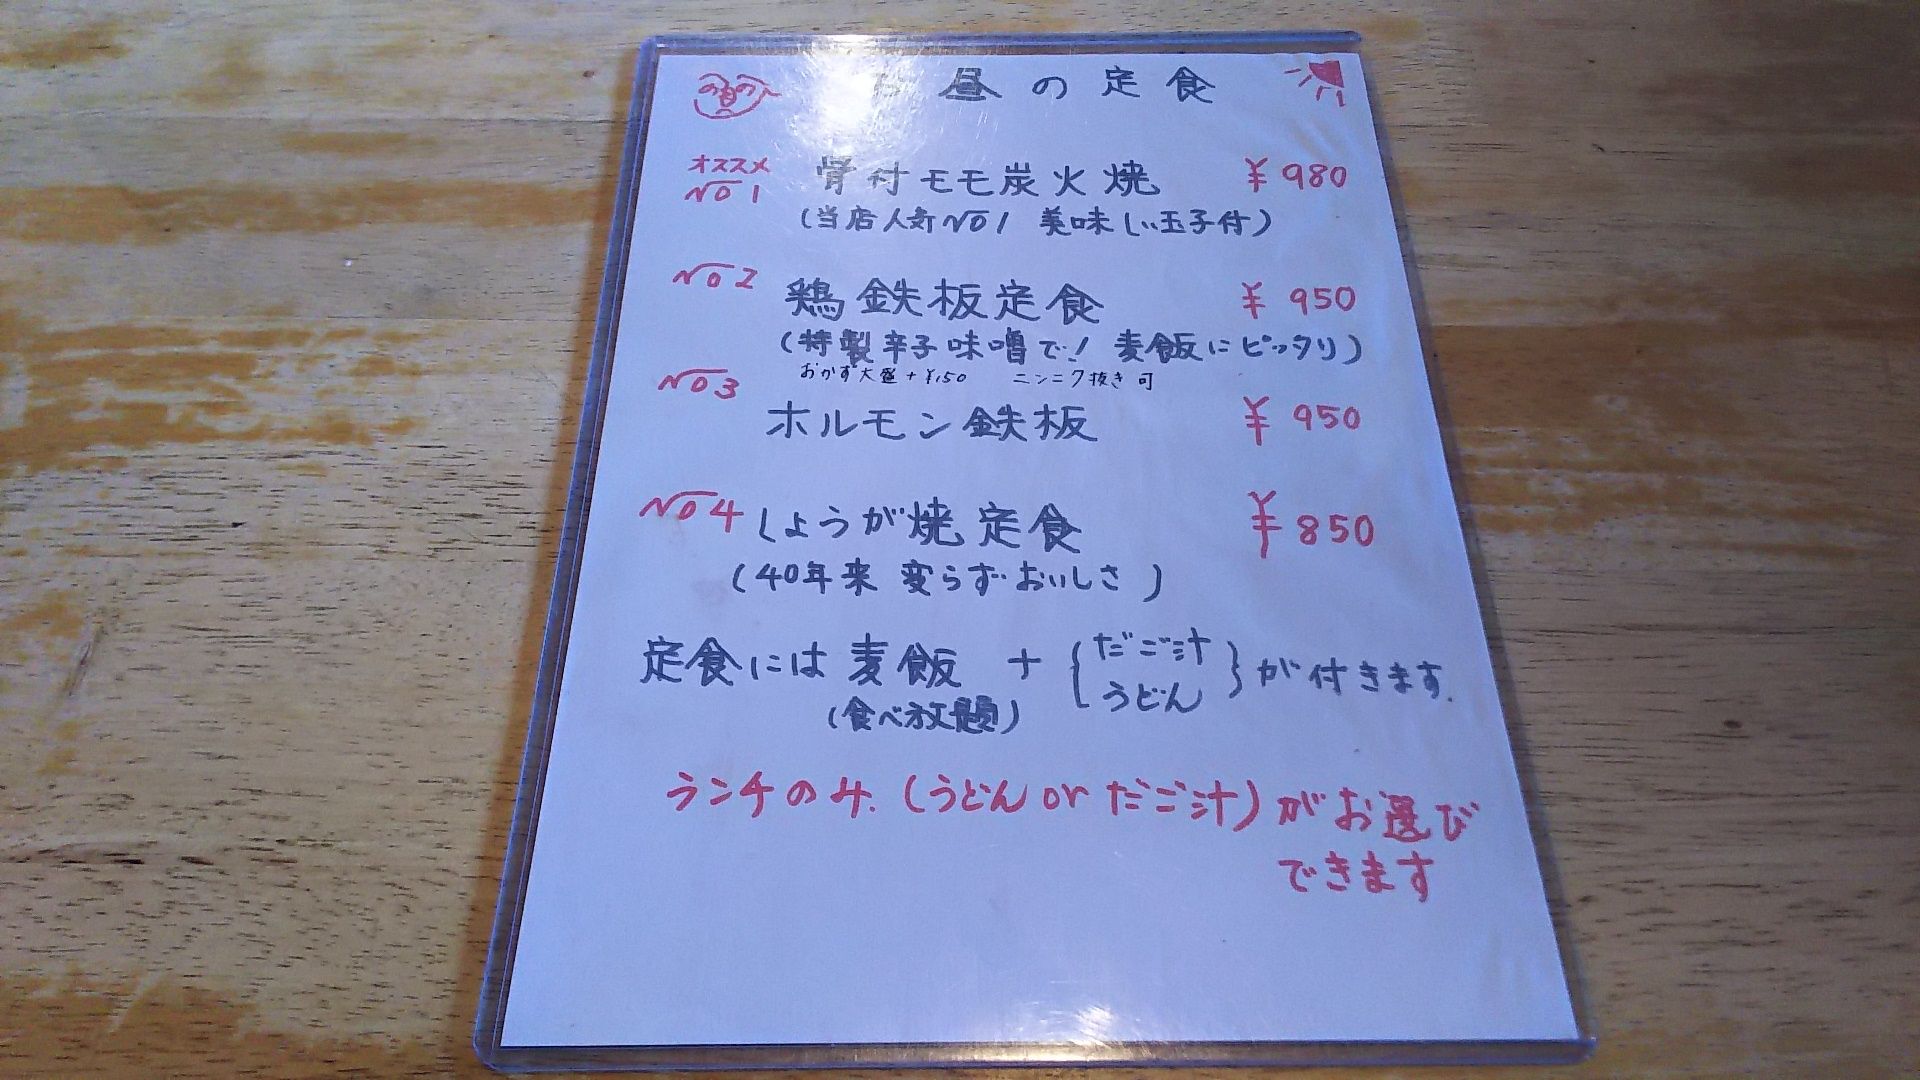 お昼の定食
オススメ
No 1 骨付モモ炭火焼 ¥980
(当店人気No1 美味しい玉子付)
No 2 鶏鉄板定食 ¥950
(特製辛子味噌で! 麦飯にピッタリ)
おかず大盛+¥150 ニンニク抜き可
No 3 ホルモン鉄板 ¥950
No 4 しょうが焼定食 ¥850
(40年来 変らずおいしさ)
定食には麦飯 + {だご汁 うどん} が付きます.
(食べ放題)
ランチのみ. (うどん or だご汁) がお選び
できます